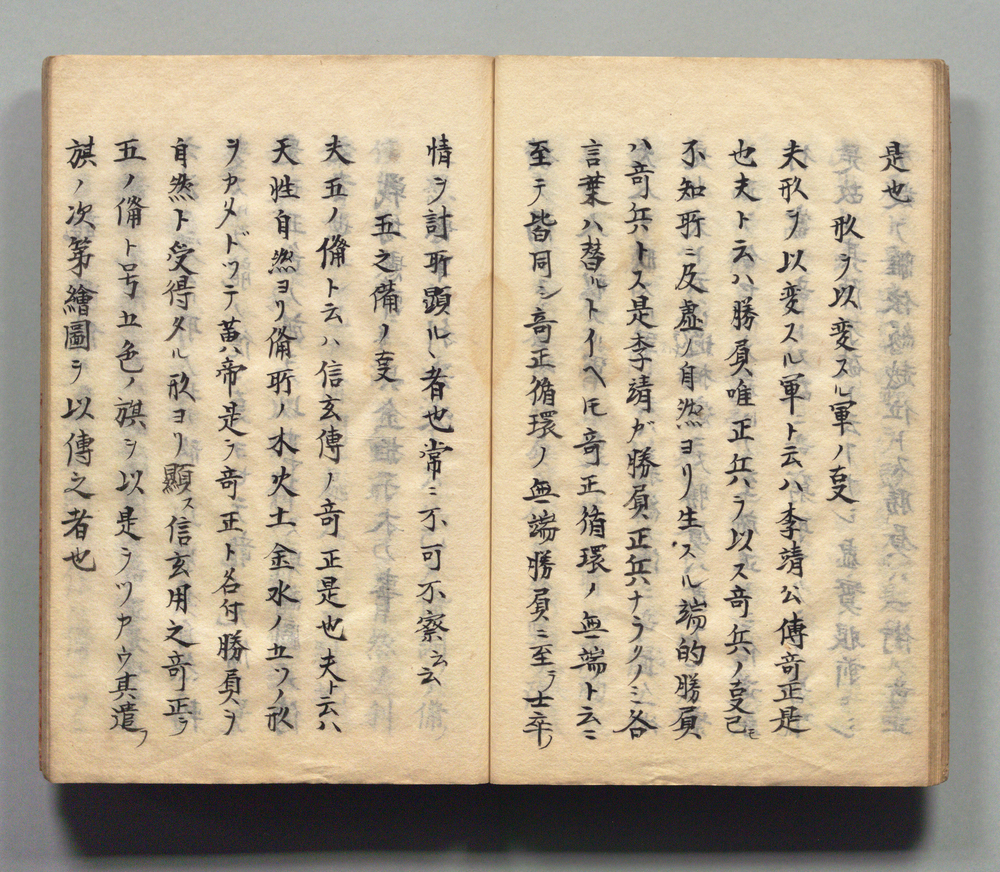 是也
形ヲ以変スル軍ノ叓
夫形ヲ以変スル軍ト云ハ李靖公傳奇正是
也夫ト云ハ勝負唯正兵ヲ以ス奇兵ノ叓己モ
不知所ニ及虚ノ自然ヨリ生スル端的勝負
ハ奇兵トス是李靖ガ勝負正兵ナラクノミ各
言葉ハ替ルトイヘ𪜈奇正循環ノ無端ト云ニ
至テ皆同シ奇正循環ノ無端勝負ニ至ラ士卒ノ
情ヲ討所顕ルヽ者也常ニ不可不察云云
五之備ノ叓
夫五ノ備ト云ハ信玄傳ノ奇正是也夫ト云ハ
天性自然ヨリ備所ノ木火土金水ノ五ツノ形
ヲカタドツテ人黄帝是ヲ奇正ト名付勝負ヲ
自然ト受得タル形ヨリ顯ス信玄用之奇正ヲ
五ノ備ト号五色ノ旗ヲ以是ヲツカウ其遣ノ
旗ノ次第繪圖ヲ以傳之者也